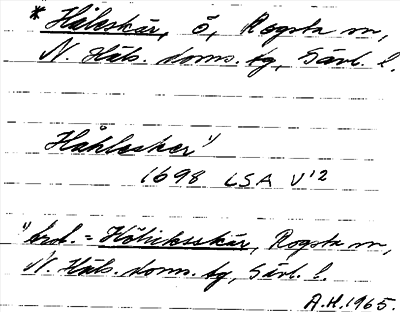 * Håleskär, ö, Rogsta sn,
N. Häls. doms. tg, Gävl. l.
Håhlesker 1)
1698 LSA V 12
1) trol. = Hölicksskär, Rogsta sn,
N. Häls. doms. tg, Gävl. l.
A.H. 1965.